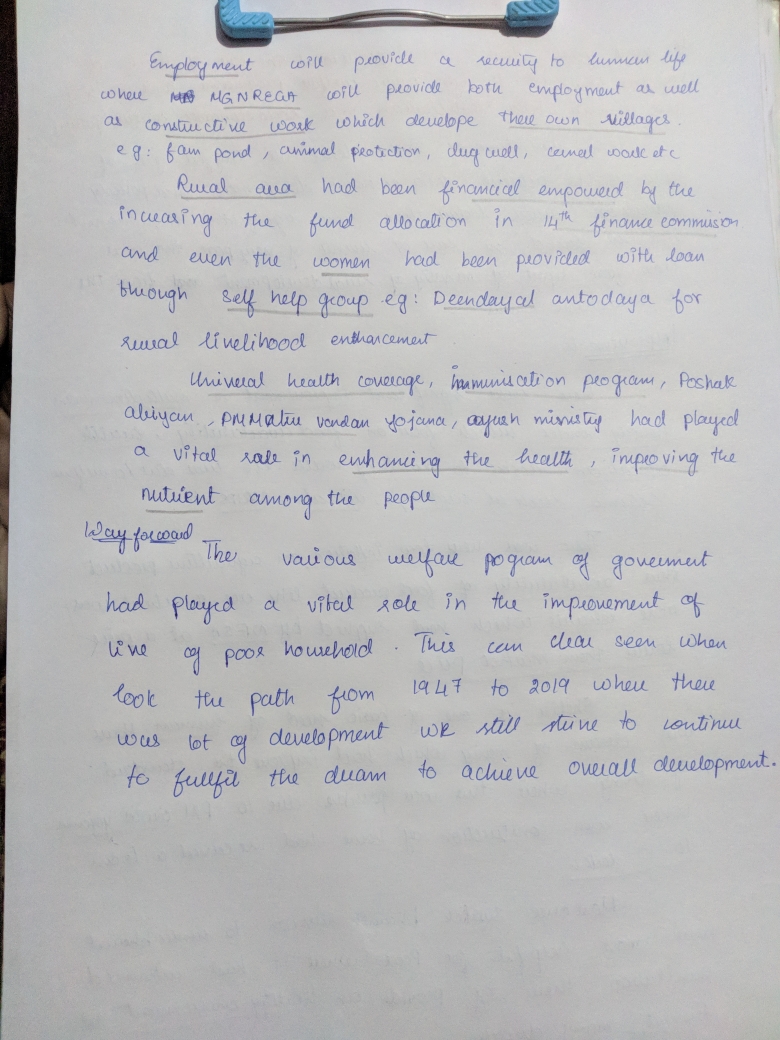 Employment will provide a security to human life
where MGNREGA will provide both employment as well
as constructive work which develope there own villages.
eg: fam pond, animal protection, dug well, cannel work etc
Rural area had been financial empowered by the
increasing the fund allocation in 14th finance commission
and even the women had been provided with loan
through self help group eg: Deendayal antodaya for
rural livelihood enhancement
Univeral health coverage, immunisation program, Poshak
abiyan, PMMatru vandan yojana, ayush ministry had played
a vital role in enhancing the health, improving the
nutrient among the people
Way forward
The various welfare program of goverment
had played a vital role in the improvement of
live of poor household. This can clear seen when
look the path from 1947 to 2019 where there
was lot of development we still strive to continue
to fullfil the dream to achieve overall development.